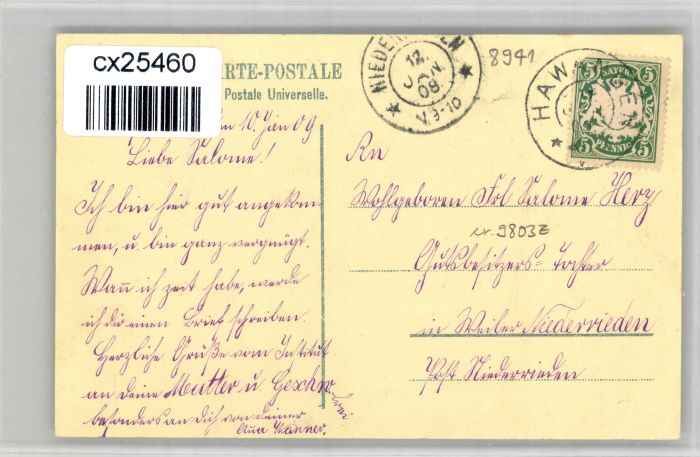 cx25460
RTE-POSTALE
Postale Universelle.
NIEDER
12. JAN. 09
V. 9-10
8941
HAW
BAYERN
5 5
PFENNIG
5 5
10. Jan 09
Liebe Salome!
Ich bin hier gut angekom-
men, u. bin ganz vergnügt.
Wann ich zeit habe, werde
ich dir einen Brief schreiben.
Herzliche Grüße vom Institut
an deine Mutter u. Geschw.
besonders an dich von deiner
Anna Wanner.
An
Wohlgeboren Frl Salome Herz
Nr. 9803Z
Gutsbesitzers-Tochter
in Weiler Niederrieden
Post Niederrieden